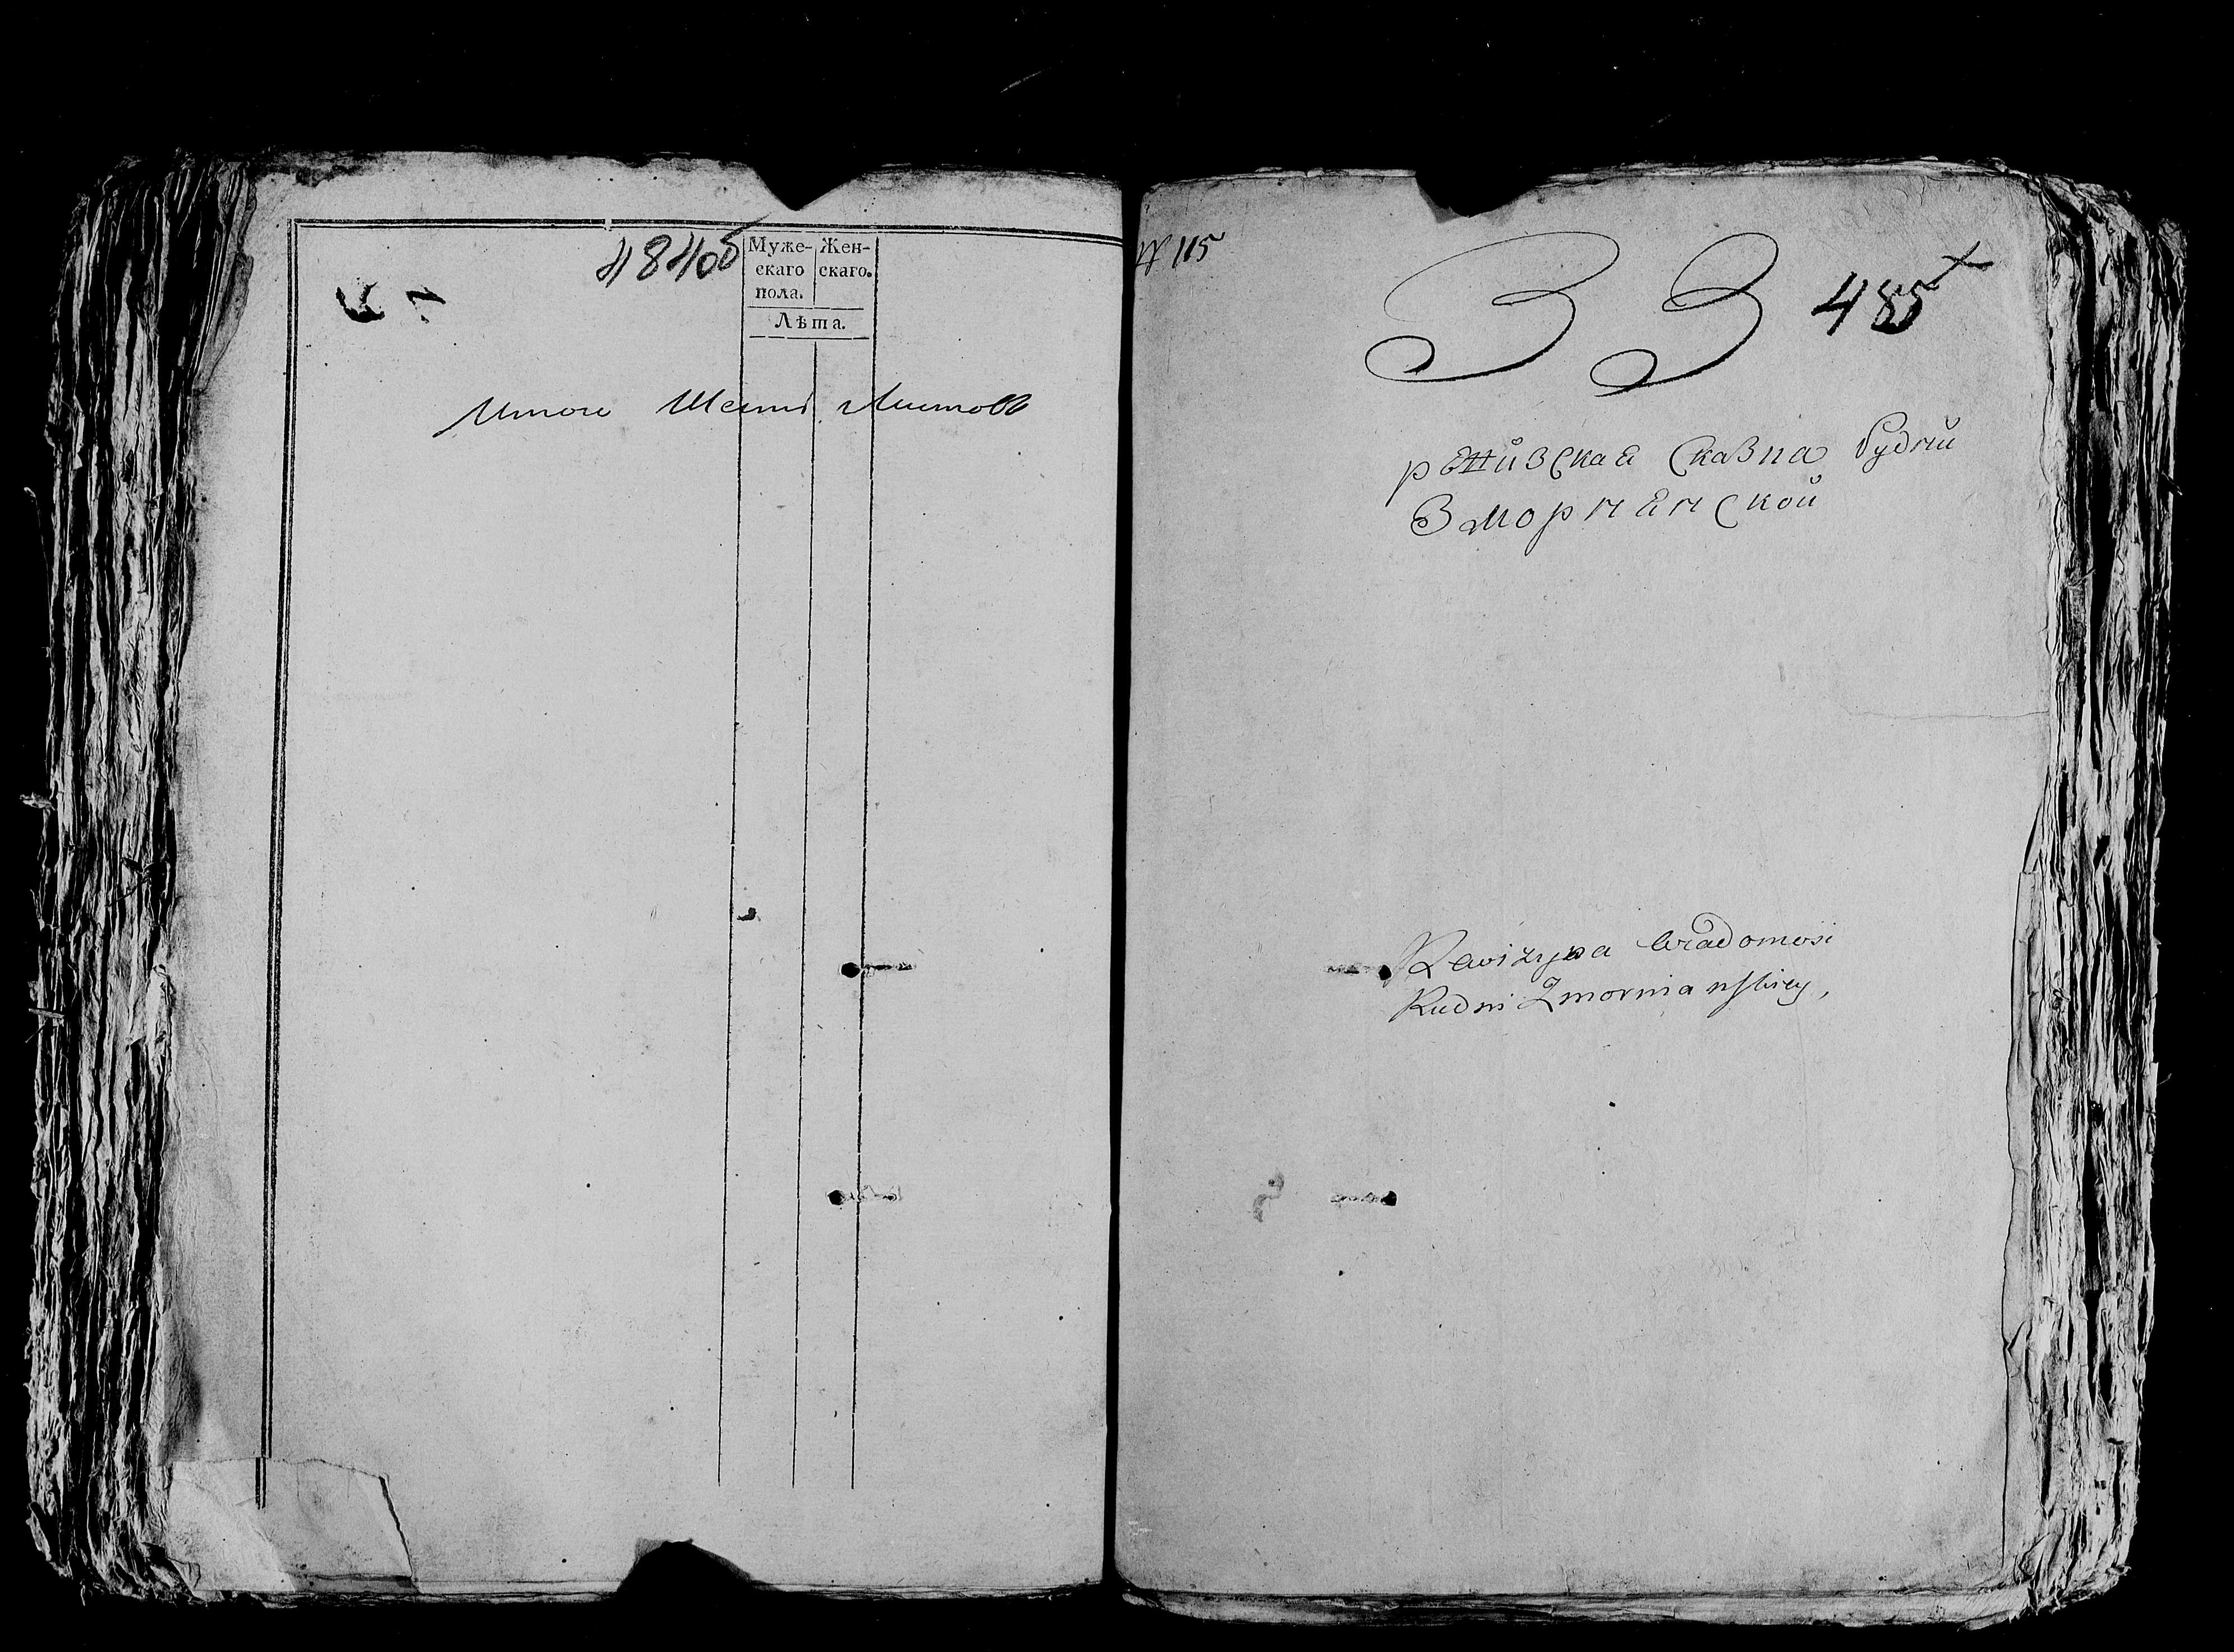 484об
Муже- Жен-
скаго скаго.
пола.
Лѣта.
Итого Шесть Листовъ
№ 115
33 485
ревизская Сказка Рудни
Зморненской
Rewizyjna Wiadomosi
Rudni Zmornianskiey,